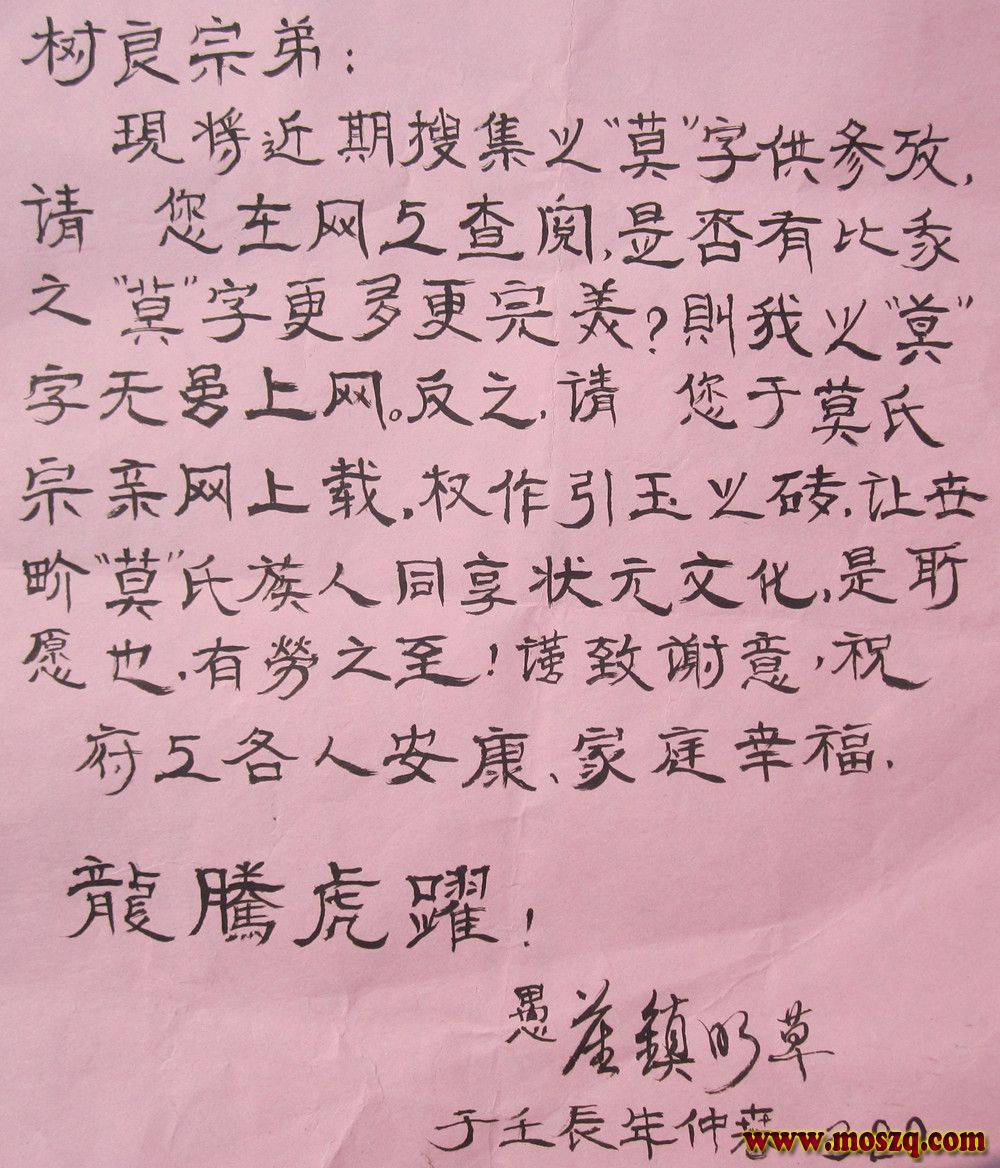 树良宗弟：
現将近期搜集之"莫"字供参攷,
请 您在网上查阅,是否有比
之"莫"字更多更完美?則我之"莫"
字无上网。反之,请 您于莫氏
宗亲网上载,权作引玉之砖,让世
界"莫"氏族人同享状元文化,是所
愿也,有勞之至!谨致謝意,祝
府上各人安康、家庭幸福,
龍騰虎躍!
愚 莫鎮明草
于壬辰年仲春
www.moszq.com